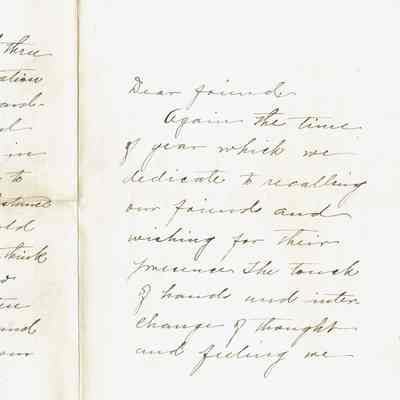 thru
in
to
old
think
and
Dear friend
Again the time
of year which we
dedicate to recalling
our friends and
wishing for their
presence The touch
of hands and inter
change of thought
and feeling we